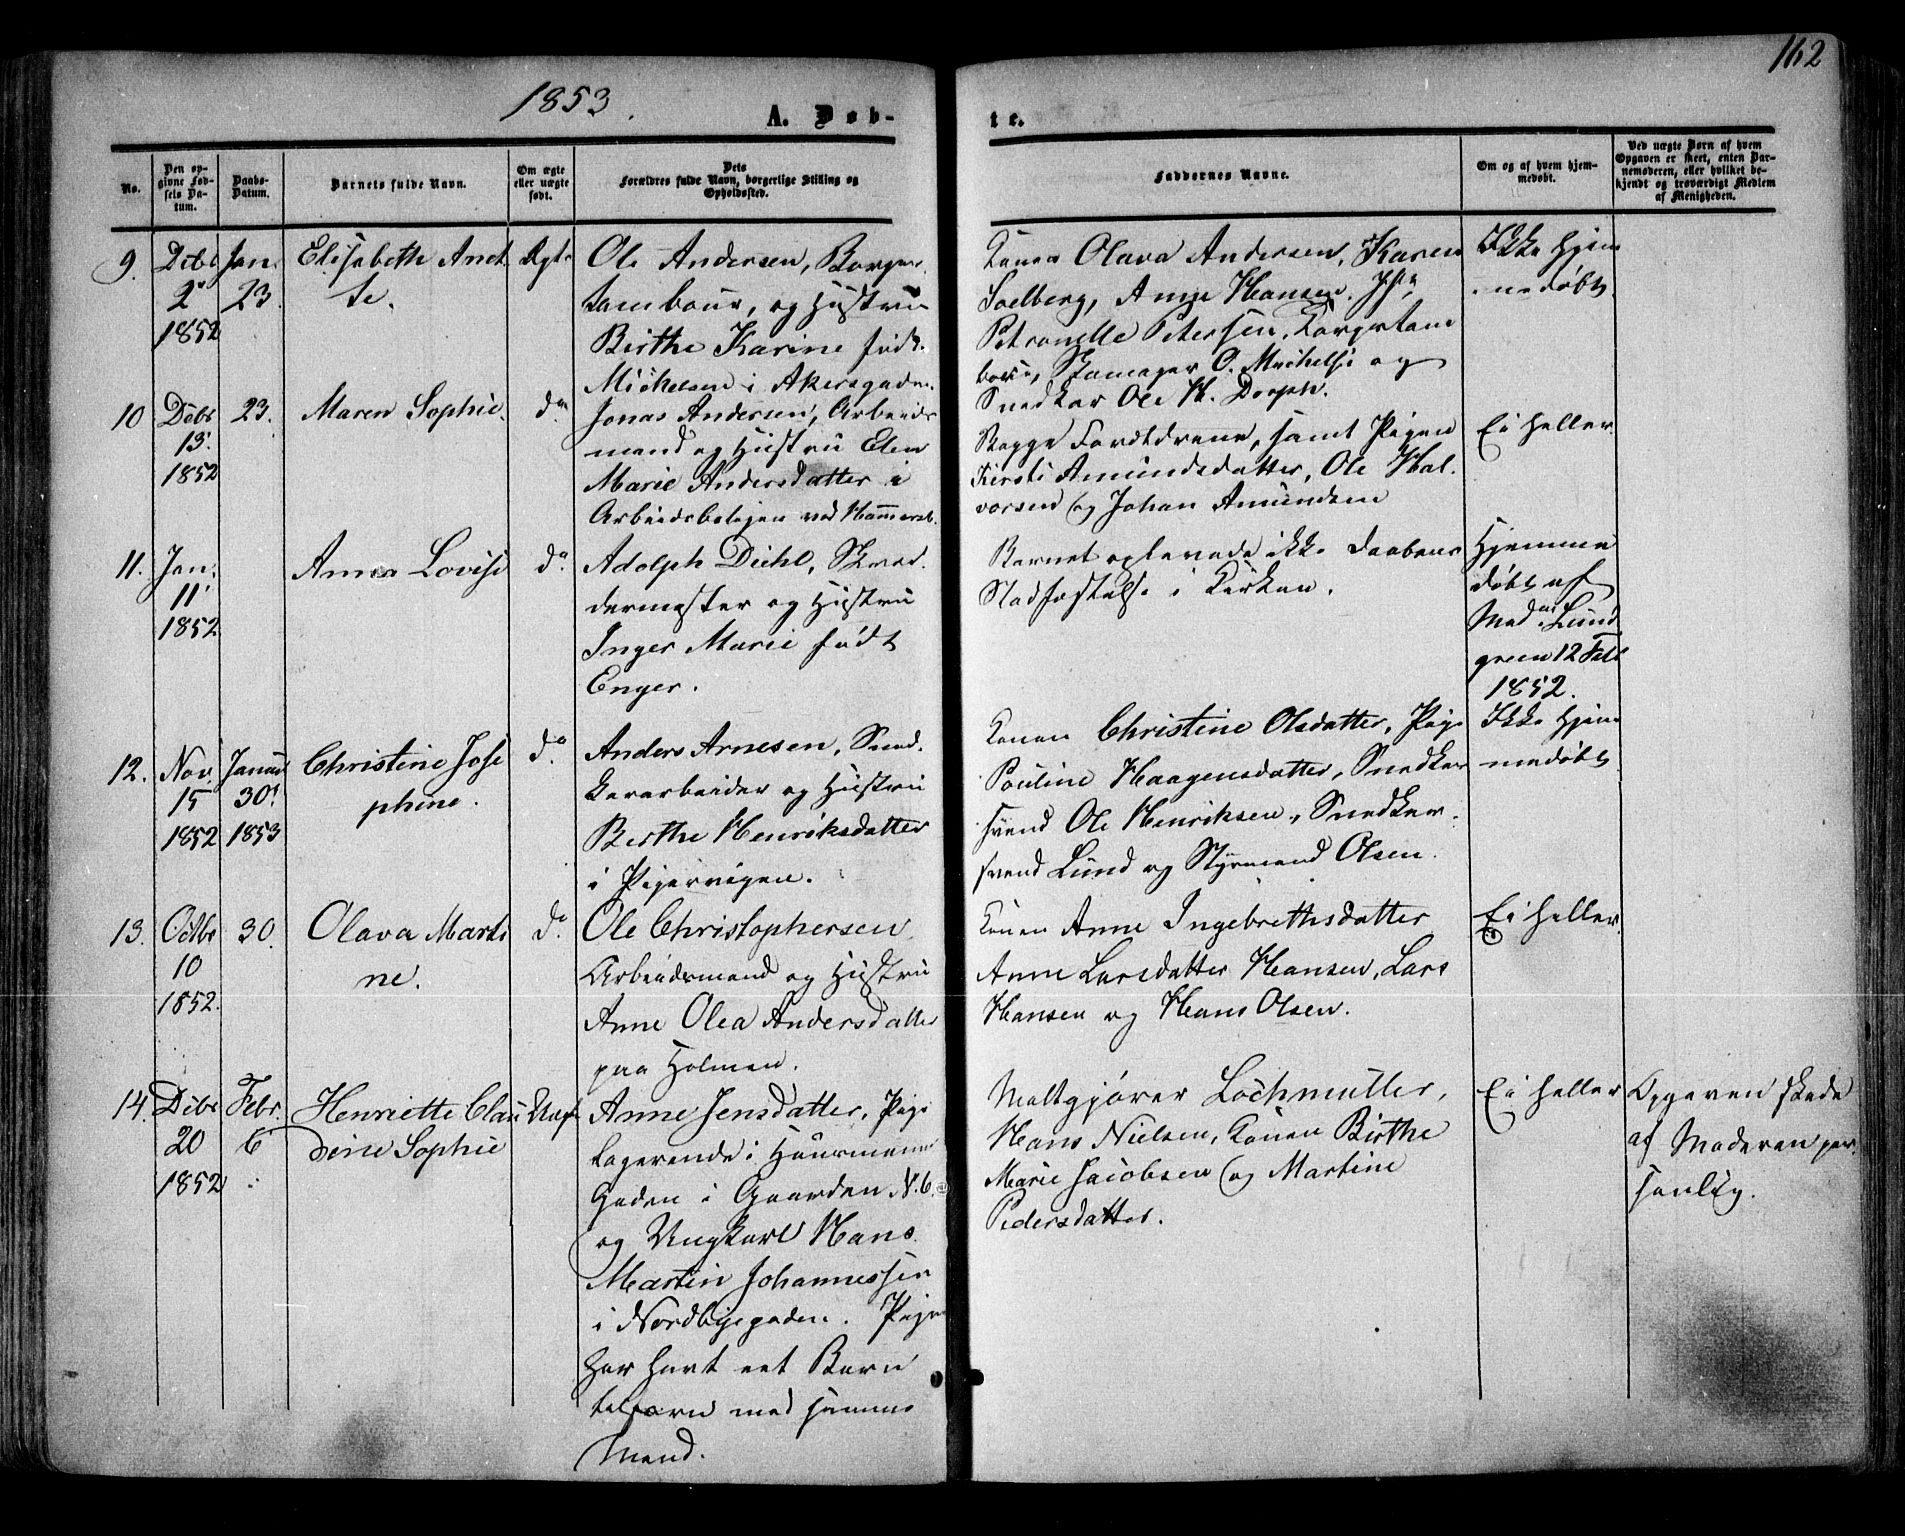 1853.
162
A. Døb-
te.
No.
Den op-
givne Fød-
sels Da-
tum.
Daabs-
Datum.
Barnets fulde Navn.
Om ægte
eller uægte
født.
Dets
Forældres fulde Navn, borgerlige Stilling og
Opholdssted.
Faddernes Navne.
Om og af hvem hjem-
medøbt.
Ved uægte Børn af hvem
Opgaven er skeet, enten Bar-
nemoderen, eller hvilket be-
kjendt og troværdigt Medlem
af Menigheden.
9.
Debr
2
1852
Jan.
23.
Elisabeth Anet
te.
Ægte
Ole Andersen, Borger
tambour, og Hustru
Birthe Karine født
Mickelsen i Akersgaden.
Konen Olava Andersen, Karen
Soelberg, Anne Hansen. Jfr
Petronelle Petersen, Borgertam
bour, Skomager O. Michelse og
Snedker Ole H. Dorph.
Ikke hjem
medøbt
10
Debr
13.
1852
23.
Maren Sophie.
do
Jonas Andersen, Arbeids
mand og Hustru Elen
Marie Andersdatter i
Arbeidsboligen ved Hammersb.
Begge Forældrene, samt Pigen
Kersti Amundsdatter, Ole Hal
vorsen og Johan Amundsen
Ei heller.
11.
Jan.
11
1852
Anna Lovise
do
Adolph Diehl, Skræd
dermester og Hustru
Inger Marie født
Enger.
Barnet oplevede ikke Daabens
Stadfæstelse i Kirken.
Hjemme
døbt af
Mad. Lund
green 12 Feb
1852.
12.
Nov.
15
1852
Januar
30
1853
Christine Jose
phine.
do
Anders Arnesen, Sned
kerarbeider og Hustru
Berthe Henriksdatter
i Pipervigen.
Konen Christine Olsdatter, Pige
Pouline Haagensdatter, Snedker
svend Ole Henriksen, Snedker
svend Lund og Styrmand Olsen.
Ikke hjem
medøbt
13.
Octbr
10
1852.
30.
Olava Marti
ne.
do
Ole Christophersen
Arbeidsmand og Hustru
Anne Olea Andersdatter
paa Holmen.
Konen Anne Ingebrethsdatter
Anne Larsdatter Hansen, Lars
Hansen og Hans Olsen.
Ei heller.
14.
Debr
20
1852
Febr.
6
Henriette Clau
dine Sophie
Uægte
Anne Jensdatter, Pige
logerende i Huusmanns
gaden i Gaarden N. 6.
og Ungkarl Hans
Martin Johannessen
i Nordbygaden. Pigen
har havt eet Barn
tilforn med samme
Mand.
Maltgjører Lochmuller,
Hans Nielsen, Konen Birthe
Marie Jacobsen og Martine
Pedersdatter.
Ei heller
Opgaven skede
af Moderen per
sonlig.